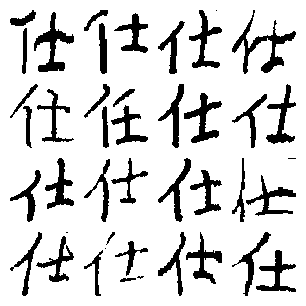 仕仕仕仕
仕任仕仕
仕仕仕仕
仕仕仕仕